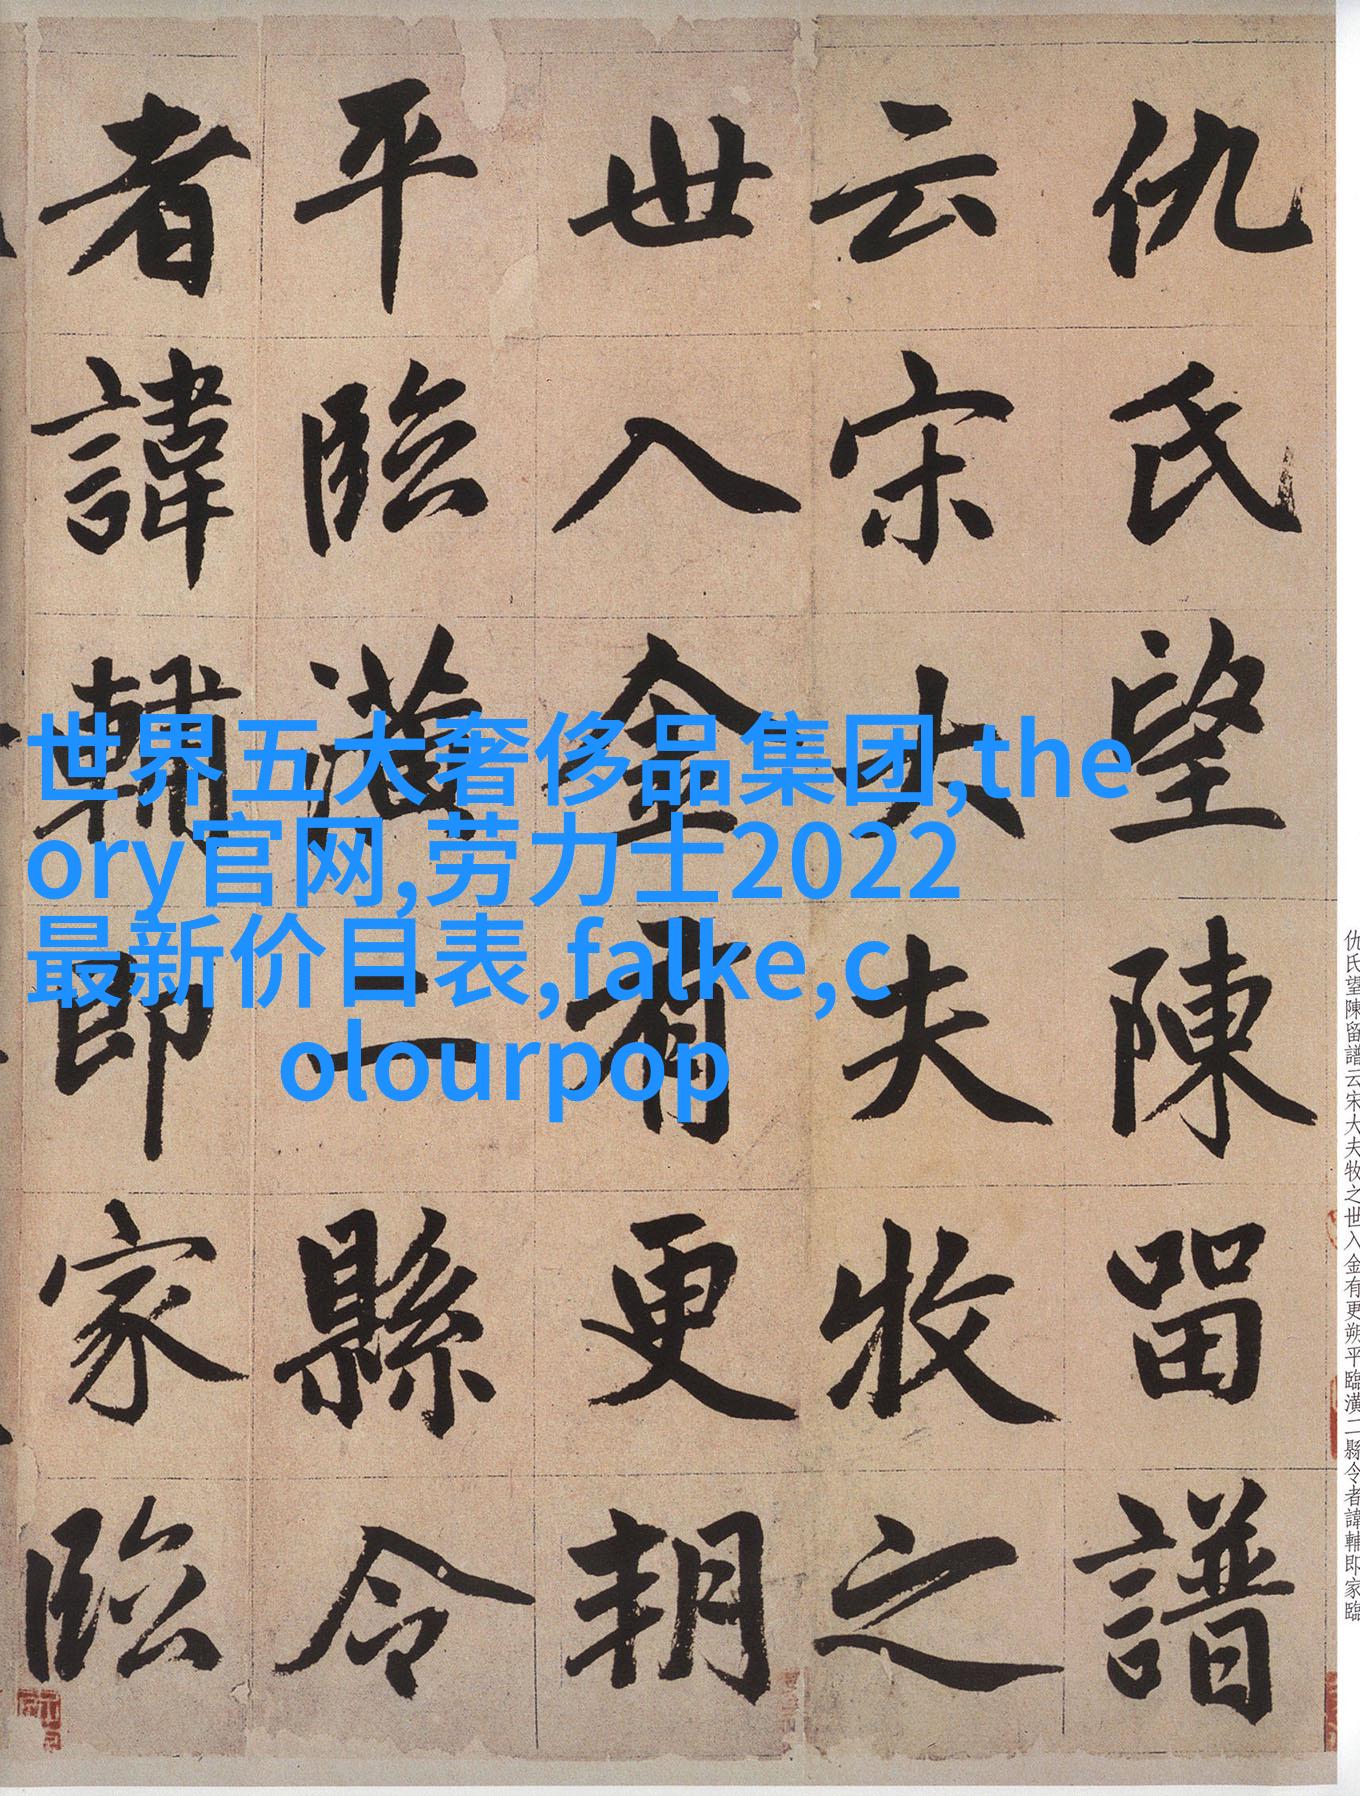 仇氏望陳留譜
云宋大夫牧之
世入金有更朔
平臨潢二縣令
者諱輔即家臨
世界五大奢侈品集团,the
ory官网,劳力士2022
最新价目表,falke,c
olourpop
仇氏望陳留譜云宋大夫牧之世入金有更朔平臨潢二縣令者諱輔即家臨